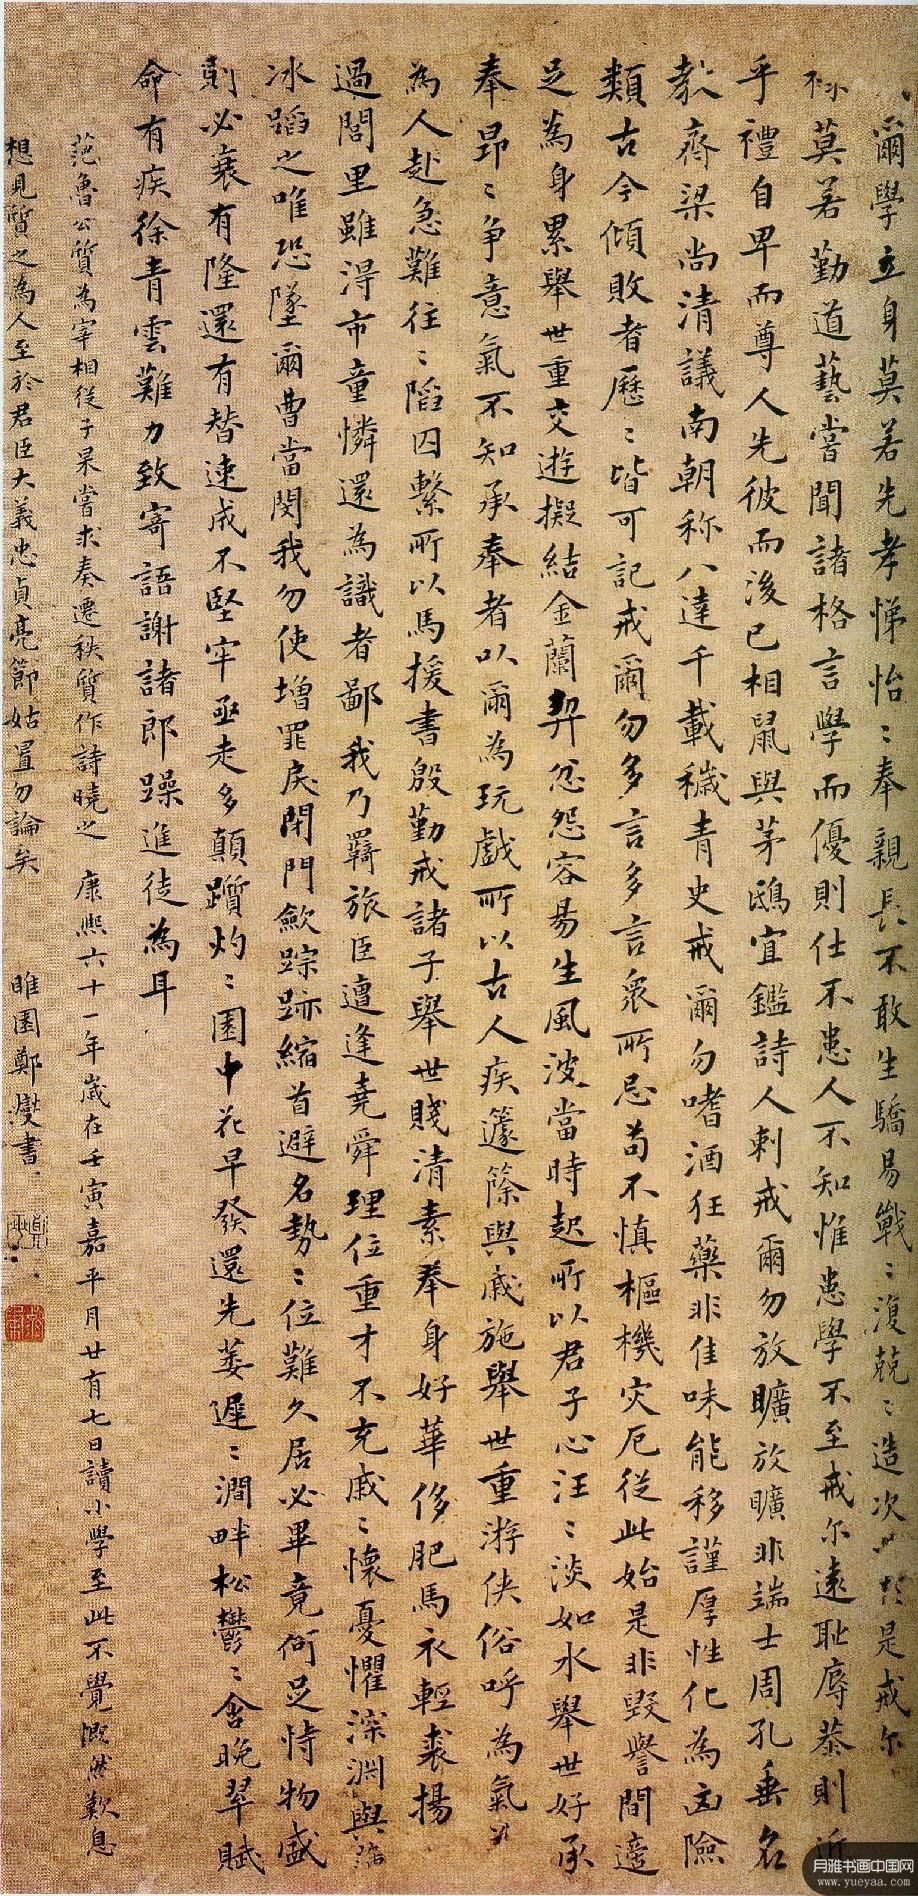 爾學立身莫若先孝悌怡〻奉親長不敢生驕易戰〻復兢〻造次必於是戒尔
莫若勤道藝嘗聞諸格言學而優則仕不患人不知惟患學不至戒尔遠恥辱恭則近
乎禮自卑而尊人先彼而後己相鼠與茅鴟宜鑑詩人刺戒爾勿放曠放曠非端士周孔垂名
教齊梁尚清議南朝称八達千載穢青史戒爾勿嗜酒狂藥非佳味能移謹厚性化為凶險
類古今傾敗者歷〻皆可記戒爾勿多言多言衆所忌苟不慎樞機灾厄從此始是非毀譽間適
足為身累舉世重交遊擬結金蘭契忿怨容易生風波當時起所以君子心汪〻淡如水舉世好承
奉昂〻爭意氣不知承奉者以爾為玩戲所以古人疾籧篨與戚施舉世重游俠俗呼為氣義
為人赴急難往〻陷囚繫所以馬援書殷勤戒諸子舉世賤清素奉身好華侈肥馬衣輕裘揚
過閭里雖淂市童憐還為識者鄙我乃羇旅臣遭逢堯舜理位重才不充戚〻懷憂懼深淵與薄
冰蹈之唯恐墜爾曹當閔我勿使增罪戾閉門歛踪跡縮首避名勢〻位難久居必畢竟何足恃物盛
則必衰有隆還有替速成不堅牢亟走多顛躓灼〻園中花早發還先萎遲〻澗畔松鬱〻含晚翠賦
命有疾徐青雲難力致寄語謝諸郎躁進徒為耳
范魯公質為宰相從子杲嘗求奏遷秩質作詩曉之 康熙六十一年歲在壬寅嘉平月廿有七日讀小學至此不覺慨然歎息
想見質之為人至於君臣大義忠貞亮節姑置勿論矣 睢園鄭燮書
月雅书画中国网
www.yueyaa.com